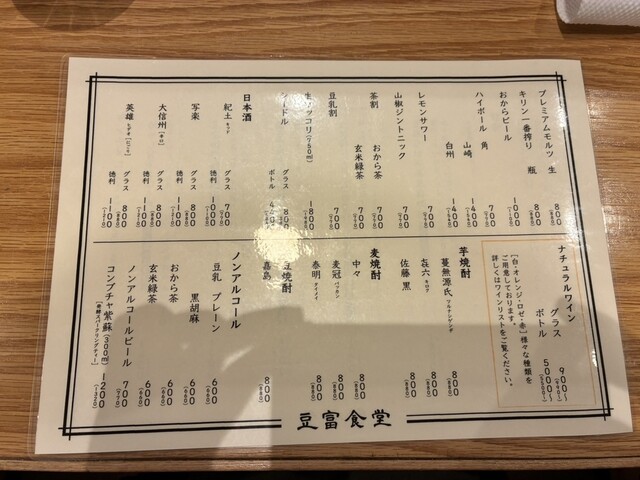 プレミアムモルツ 生 800(880)
キリン一番搾り 瓶 800(880)
おからビール 1000(1100)
ハイボール 角 700(770)
山崎 1400(1540)
白州 1400(1540)
レモンサワー 700(770)
山椒ジントニック 700(770)
茶割 おから茶 700(770)
玄米緑茶 700(770)
豆乳割 700(770)
生マッコリ(750ml) 1800
シードル グラス 800
ボトル
日本酒
紀土 キッド グラス 700(770)
徳利 1100
写楽 グラス 800(880)
徳利 1100
大信州 グラス 800(880)
徳利 1100
英雄 グラス 800
徳利 1100
ナチュラルワイン
グラス 900〜
ボトル 5000〜
[白・オレンジ・ロゼ・赤]様々な種類を
ご用意しております。
詳しくはワインリストをご覧ください。
芋焼酎
蔓無源氏 ツルナシゲンジ 800(880)
㐂六 キロク 800(880)
佐藤 黒 800(880)
麦焼酎
中々 800(880)
麦冠 800(880)
泰明 タイメイ 800(880)
豆焼酎
嘉島 800(880)
ノンアルコール
豆乳 プレーン 600(660)
黒胡麻 600(660)
おから茶 600(660)
玄米緑茶 600(660)
ノンアルコールビール 700(770)
コンブチャ紫蘇(300ml) 1200(1320)
[発酵スパークリングティー]
豆富食堂